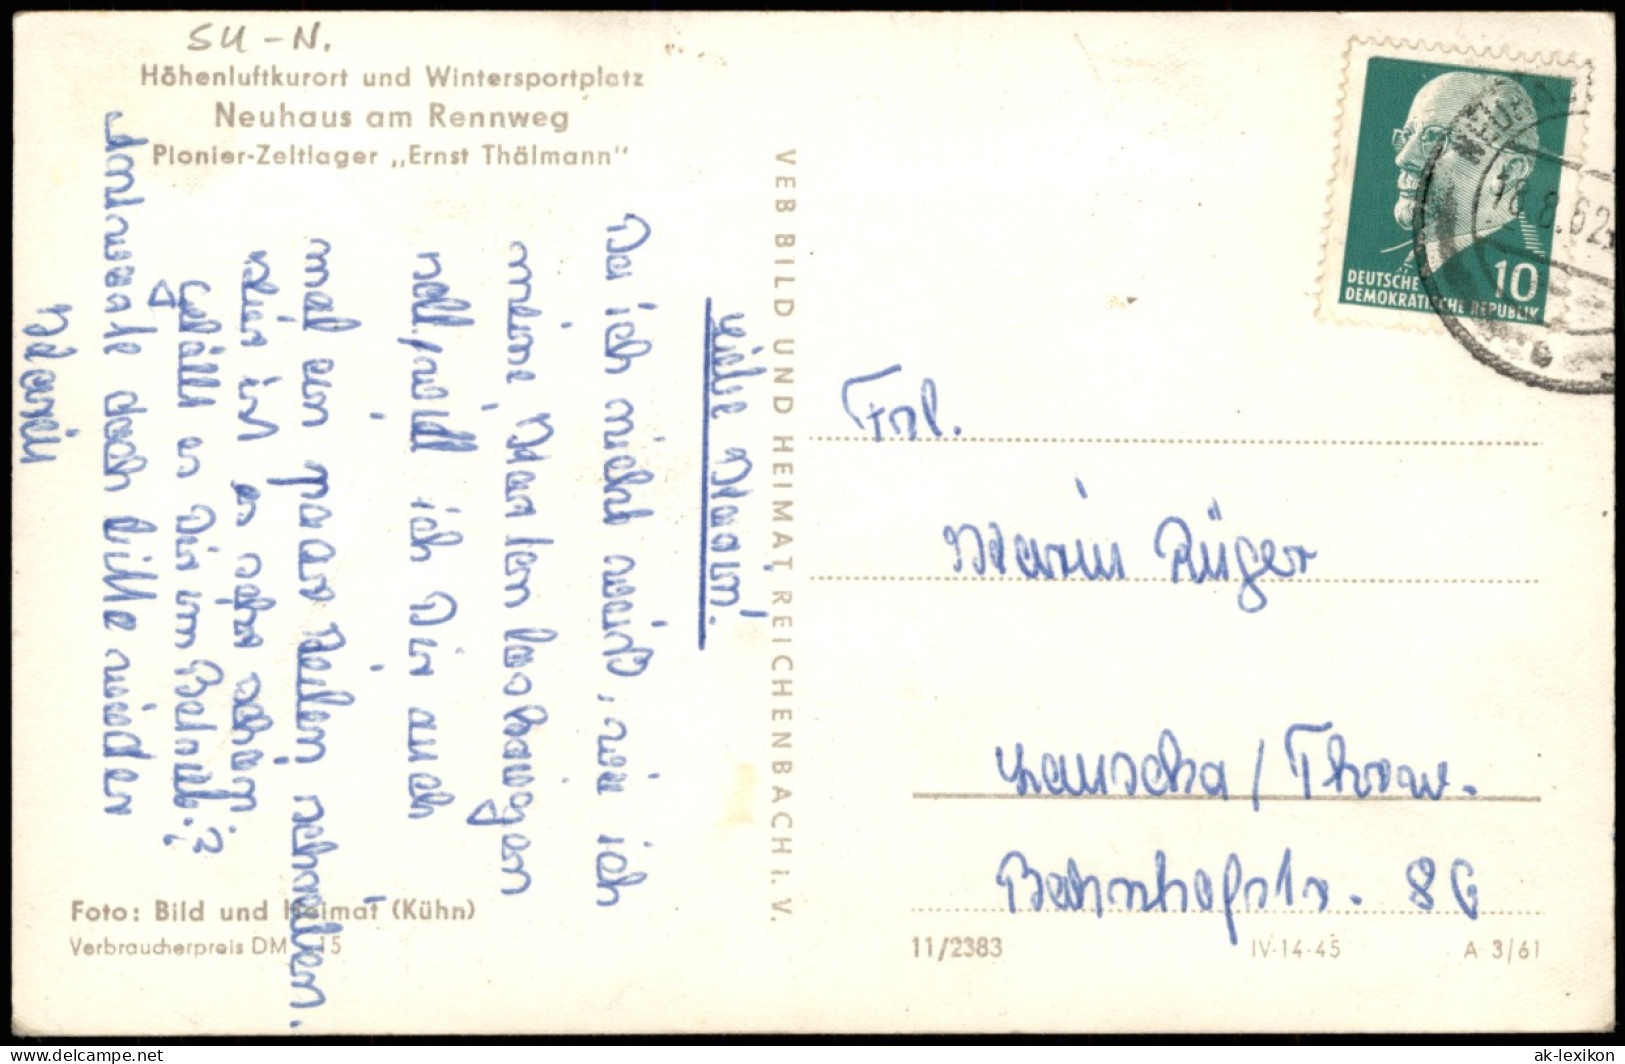 SU-N.
Höhenluftkurort und Wintersportplatz
Neuhaus am Rennweg
Pionier-Zeltlager „Ernst Thälmann"
Liebe Marin!
Da ich nicht weiß, wie ich
meine Karten los kriegen
soll, will ich Dir auch
mal ein paar Zeilen schreiben.
Hier ist es sehr schön
Gefällt es Dir im Betrieb.?
Antworte doch bitte wieder
Karin
VEB BILD UND HEIMAT REICHENBACH i. V.
Foto: Bild und Heimat (Kühn)
Verbraucherpreis DM 15
DEUTSCHE
DEMOKRATISCHE REPUBLIK
10
18.8.62
Frl.
Marin Rüger
Lauscha / Thür.
Bahnhofstr. 86
11/2383
IV-14-45
A 3/61
ak-lexikon
delcampe.net